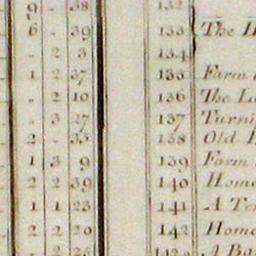 9 - 38 132
6 - 39 133 The
- 2 3 134
1 2 37 135 Farm
- 2 10 136 The
- 3 27 137 Turni
2 - 33 138 Old
1 3 9 139 Farm
2 2 39 140 Home
1 1 23 141 A
2 2 20 142 Home
2 26 A